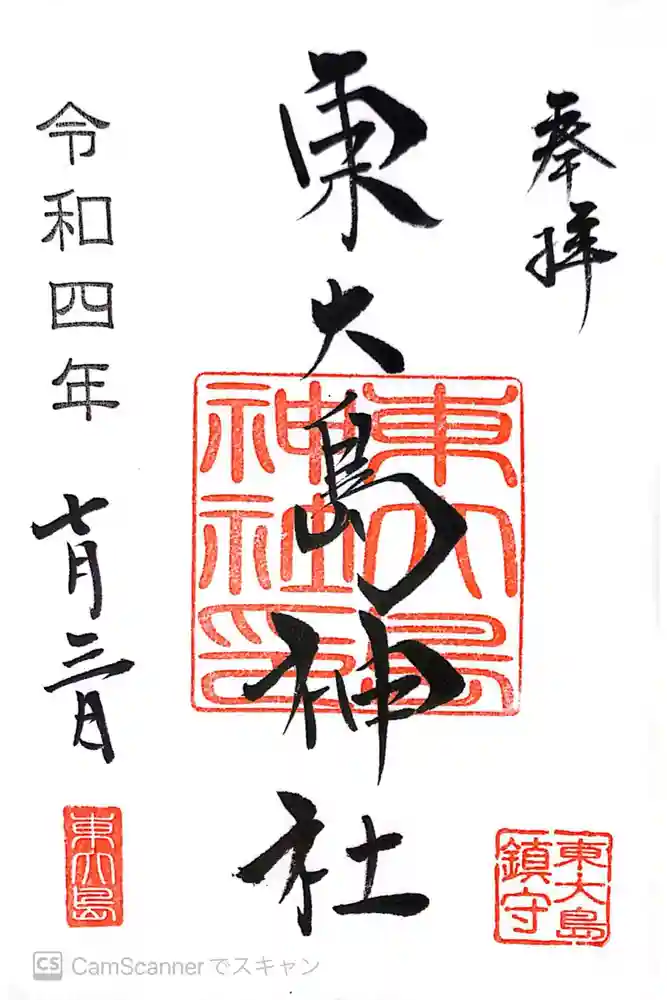 奉拝
東大島神社
東大島神社印
令和四年
七月三日
東大島
東大島
鎮守
CS CamScanner でスキャン